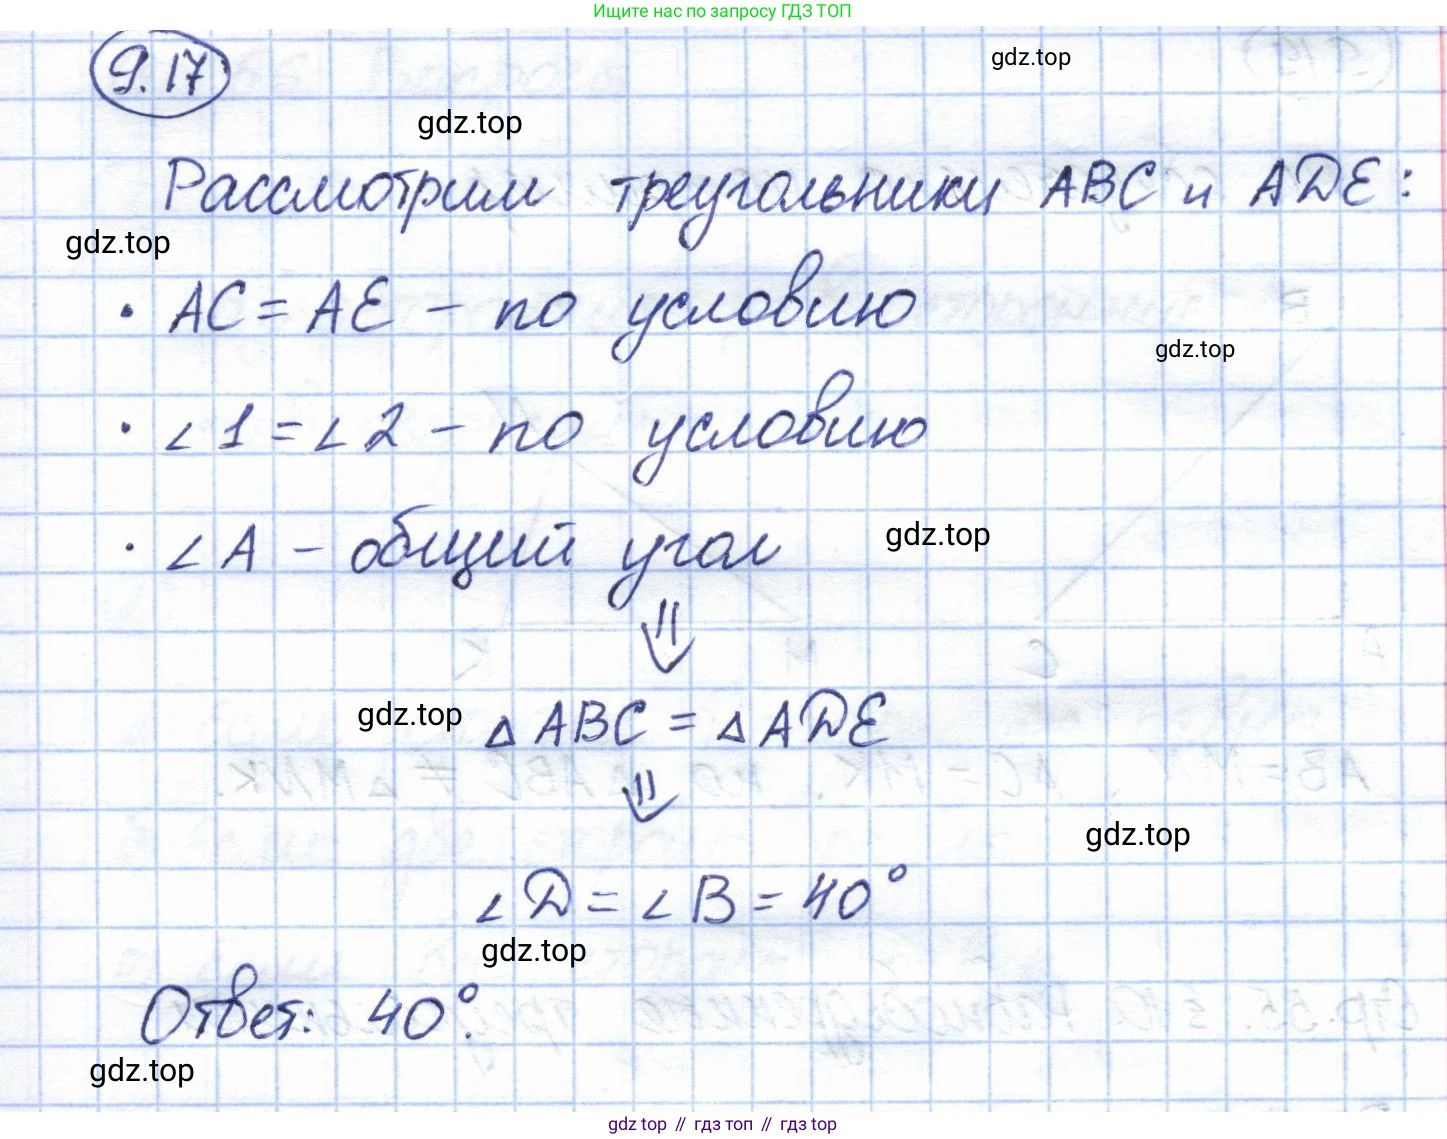 Ищите нас по запросу ГДЗ ТОП
9.17
gdz.top
gdz.top
Рассмотрим треугольники ABC и ADE:
gdz.top
• AC = AE – по условию
gdz.top
• ∠1 = ∠2 – по условию
• ∠A – общий угол
gdz.top
⇓
gdz.top
△ABC = △ADE
⇓
gdz.top
∠D = ∠B = 40°
gdz.top
Ответ: 40°.
gdz.top
gdz top // гдз топ // gdz top